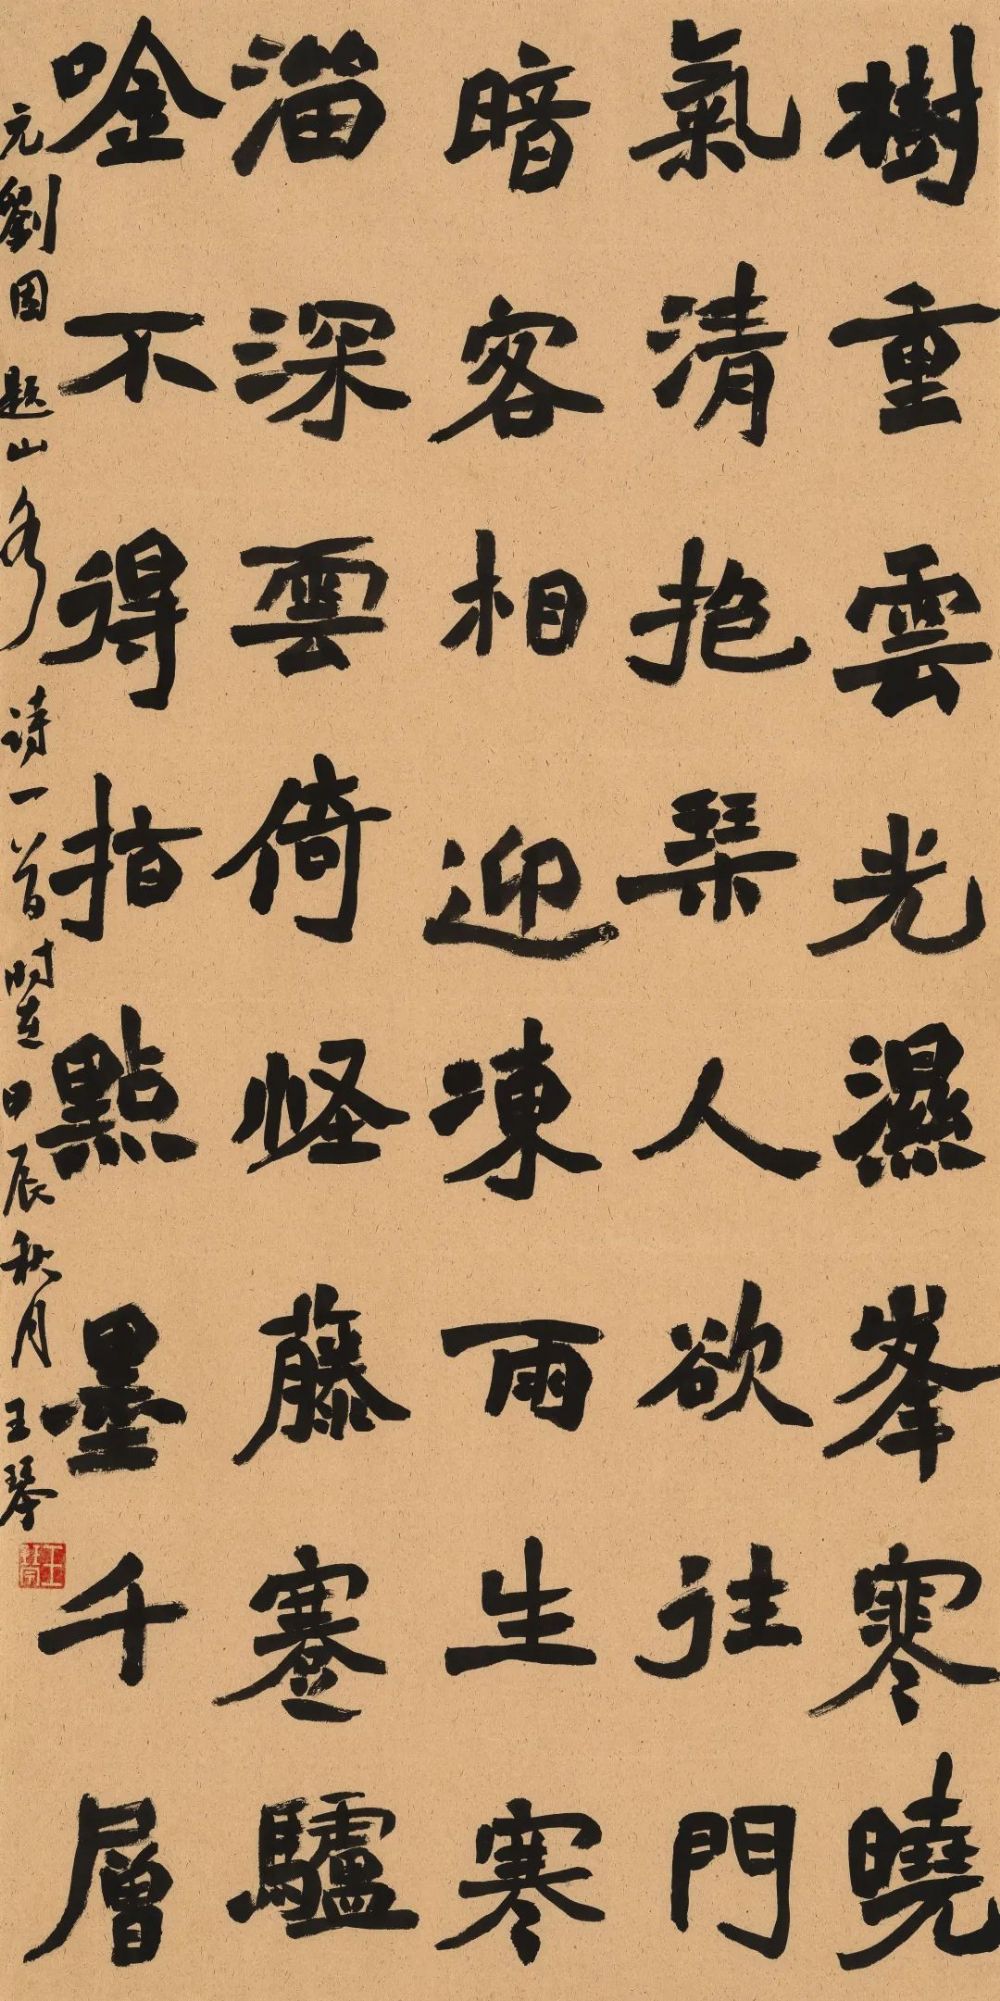 樹重雲光濕峯寒曉
氣清抱琹人欲往門
暗客相迎凍雨生寒
溜深雲倚怪藤蹇驢
唫不得指點墨千層
元劉因題山水詩一首時在甲辰秋月王琴